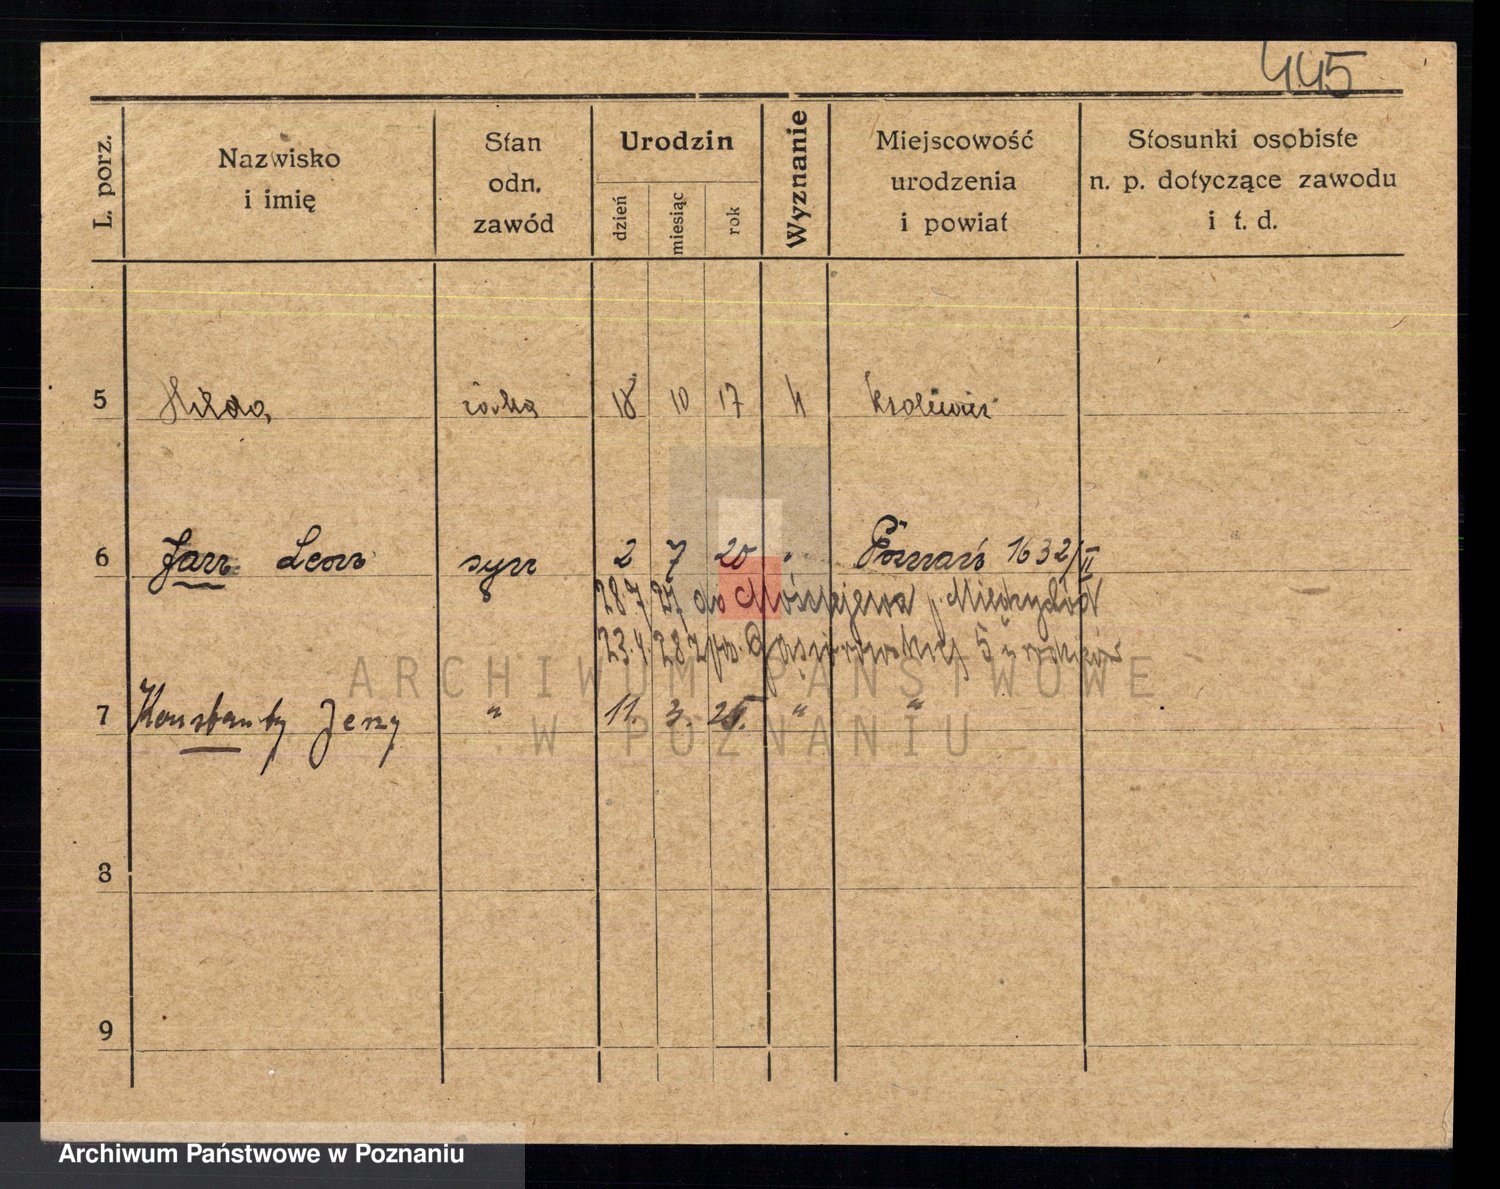 445
L. porz.
Nazwisko
i imię
Stan
odn.
zawód
Urodzin
dzień
miesiąc
rok
Wyznanie
Miejscowość
urodzenia
i powiat
Stosunki osobiste
n. p. dotyczące zawodu
i t. d.
5 Hilda córka 18 10 17 k
6 Jan Leon syn 2 7 20 " Poznań 1632/II
28 7/27 do Mościejewa p. Międzychód
23.4.28 5
7 Konstanty Jerzy " 11. 3. 25. " "
8
9
ARCHIWUM PAŃSTWOWE
W POZNANIU
Archiwum Państwowe w Poznaniu